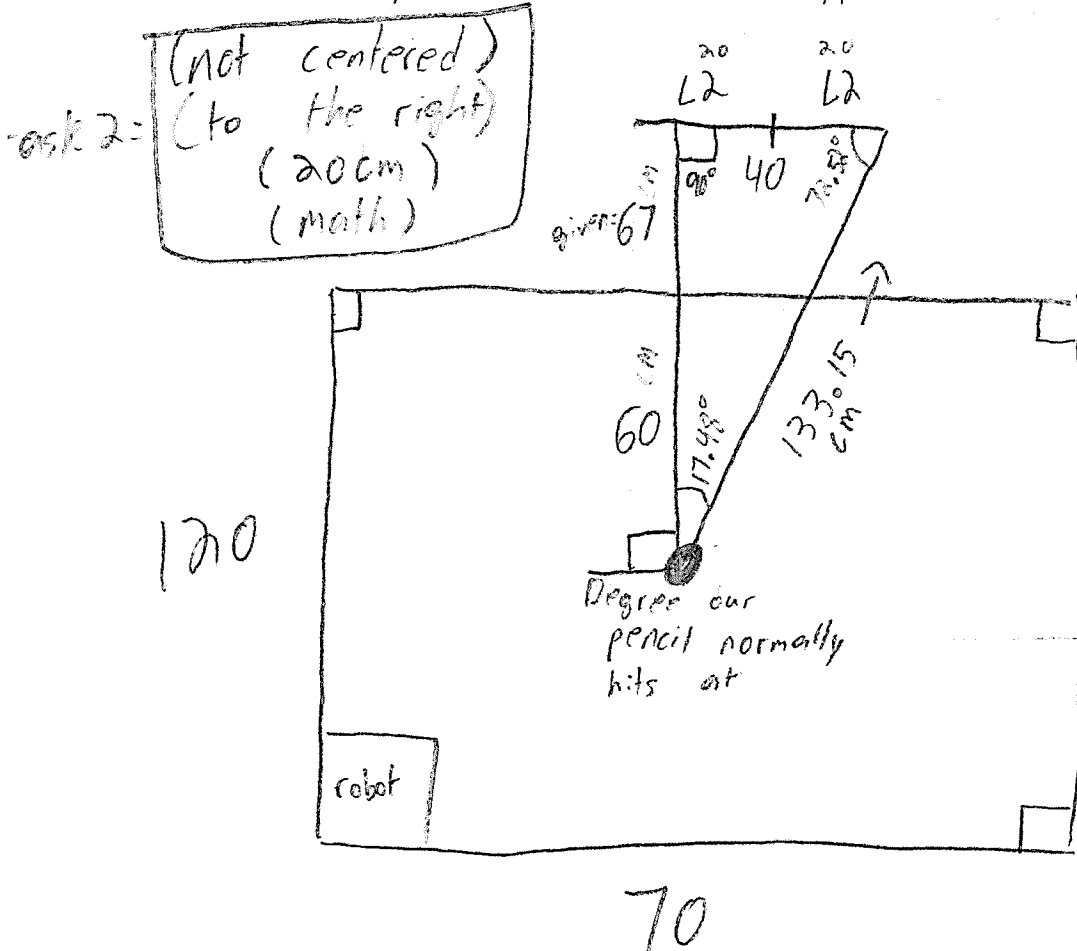 (not centered)
ask 2= (to the right)
(20cm)
(math)
20 20
L2 L2
90° 40 72.52°
given=67 cm
60 cm
17.48°
133.15
cm
120
Degree our
pencil normally
hits at
robot
70